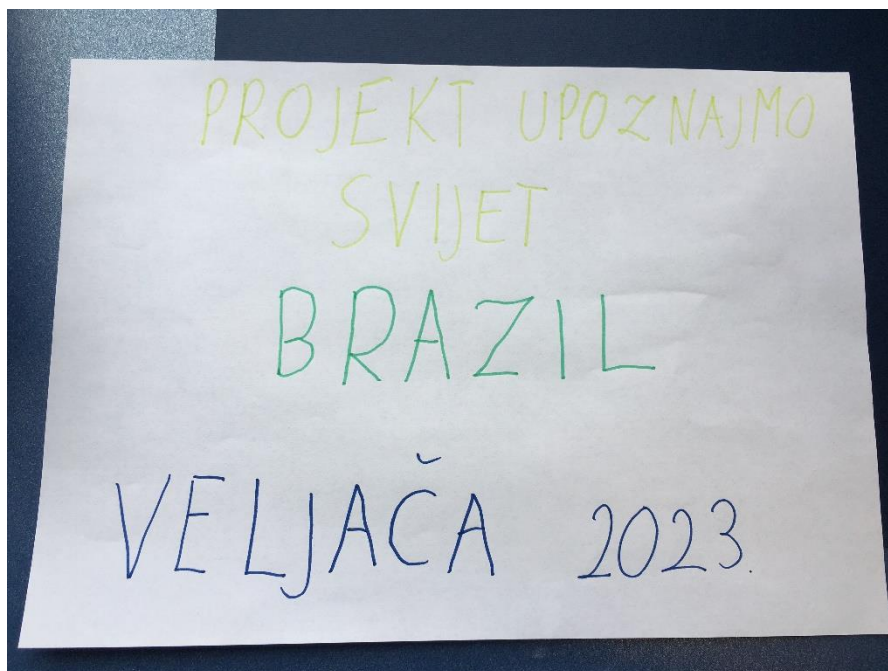 PROJEKT UPOZNAJMO
SVIJET
BRAZIL
VELJAČA 2023.